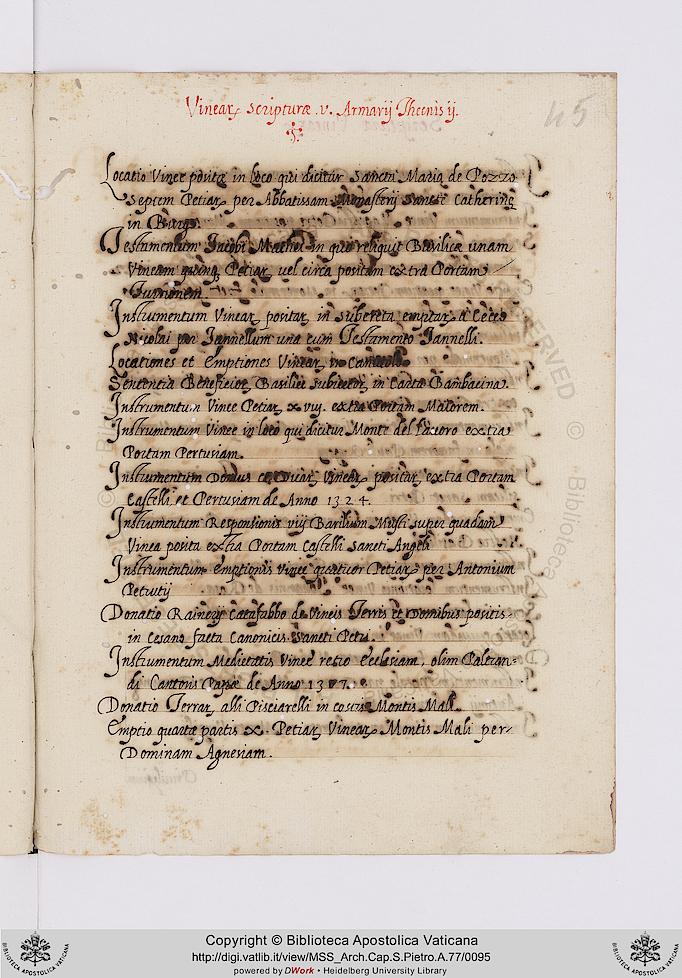 Vinear, Scripturæ .v. Armarij Thecnis ij.
45
Locatio Vineę positæ in loco qui dicitur Sanctæ Mariæ de Pozzo
Septem Petiar, per Abbatissam Monasterij Sancte Catherinę
in Burgo.
Testamentum Jacobi Mathei in quo reliquit Basilicæ unam
Vineam quinq Petiar, vel circa positam extra Portam
Instrumentum Vinear, positar, in subereta emptar, à Cecco
Nicolai per Jannellum una cum Testamento Jannelli.
Locationes et Emptiones Vinear, in
Sententia Beneficior, Basilicę in Carta Bambacina.
Instrumentum Vineę Petiar, x vij. extra Portam Maiorem.
Instrumentum Vineę in loco qui dicitur Monte del extra
Portam Pertusiam.
Instrumentum Domus et Duar, Vinear, positar, extra Portam
Castelli et Pertusiam de Anno 1324.
Instrumentum Responsionis viij Barilium Musti super quadam
Vinea posita extra Portam Castelli Sancti Angeli
Instrumentum emptionis vineę quatuor Petiar, per Antonium
Petrutij
Donatio Rainerij Catafabbo de Vineis Terris et Domibus positis
in Cesano facta Canonicis Sancti Petri.
Instrumentum Medietatis Vineę retro Ecclesiam, olim
di Cantoris Papæ de Anno
Donatio Terrar, alli Pisciarelli in Montis Mali.
Emptio quartæ partis x. Petiar, Vinear, Montis Mali per
Dominam Agnesiam.
Copyright © Biblioteca Apostolica Vaticana
http://digi.vatlib.it/view/MSS_Arch.Cap.S.Pietro.A.77/0095
powered by DWork • Heidelberg University Library